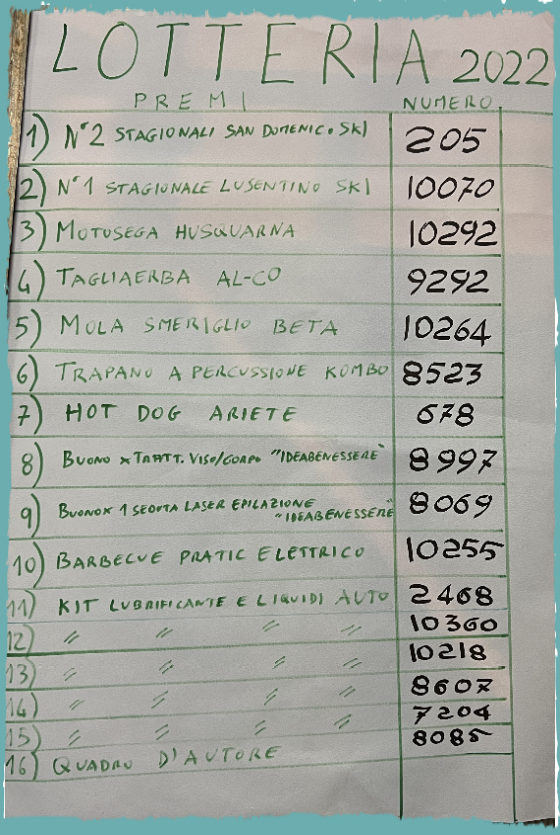 LOTTERIA 2022
PREMI NUMERO
1) N°2 STAGIONALI SAN DOMENICO SKI 205
2) N°1 STAGIONALE LUSENTINO SKI 10070
3) MOTOSEGA HUSQUARNA 10292
4) TAGLIAERBA AL-CO 9292
5) MOLA SMERIGLIO BETA 10264
6) TRAPANO A PERCUSSIONE KOMBO 8523
7) HOT DOG ARIETE 678
8) BUONO x TRATT. VISO/CORPO "IDEABENESSERE" 8997
9) BUONO x 1 SEDUTA LASER EPILAZIONE 8069
"IDEABENESSERE"
10) BARBECUE PRATIC ELETTRICO 10255
11) KIT LUBRIFICANTE E LIQUIDI AUTO 2468
12) // // // // 10360
13) // // // // 10218
14) // // // // 8607
15) // // // // 7204
16) QUADRO D'AUTORE 8085